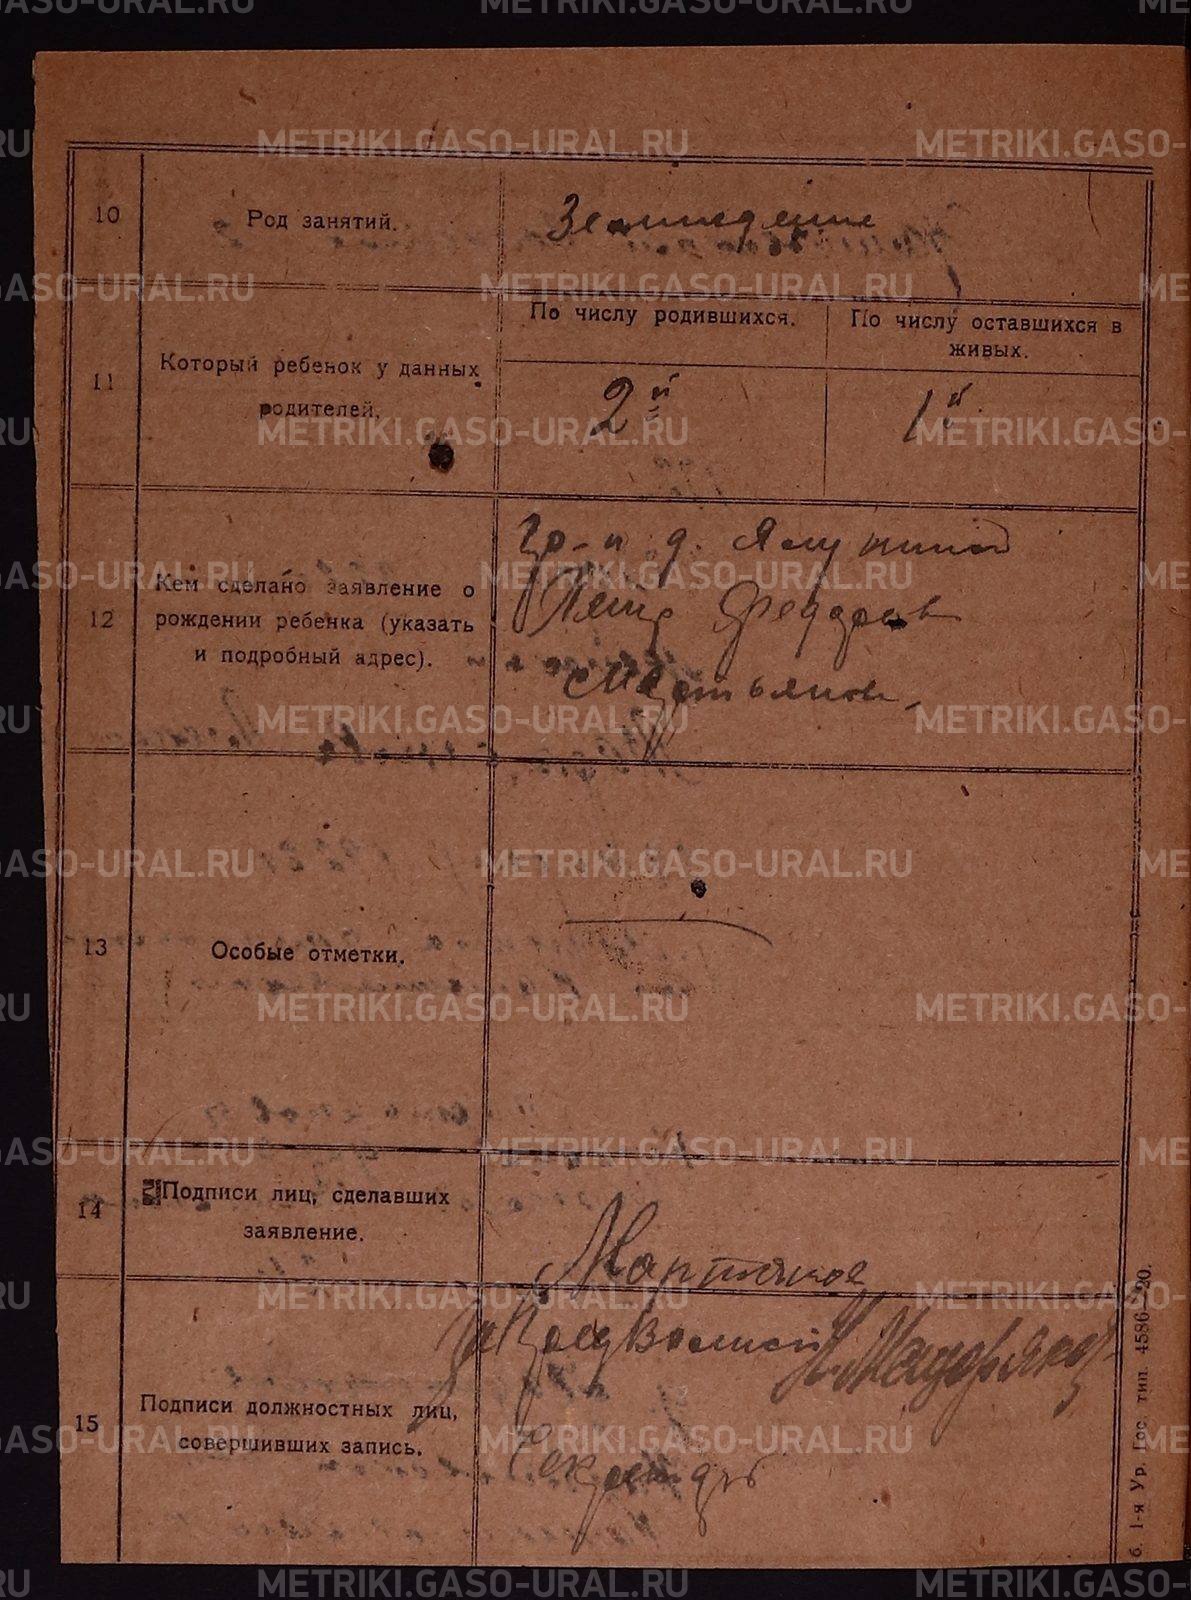 METRIKI.GASO-URAL.RU
10
Род занятий.
Земледелие
11
Который ребенок у данных
родителей.
По числу родившихся.
По числу оставшихся в
живых.
2й
1й
12
Кем сделано заявление о
рождении ребенка (указать
и подробный адрес).
гр-н д. Ялуниной
Петр Федоров
Мартьянов
13
Особые отметки.
14
Подписи лиц, сделавших
заявление.
15
Подписи должностных лиц,
совершивших запись.
Секретарь
б. 1-я Ур. Гос. тип. 4586—20.